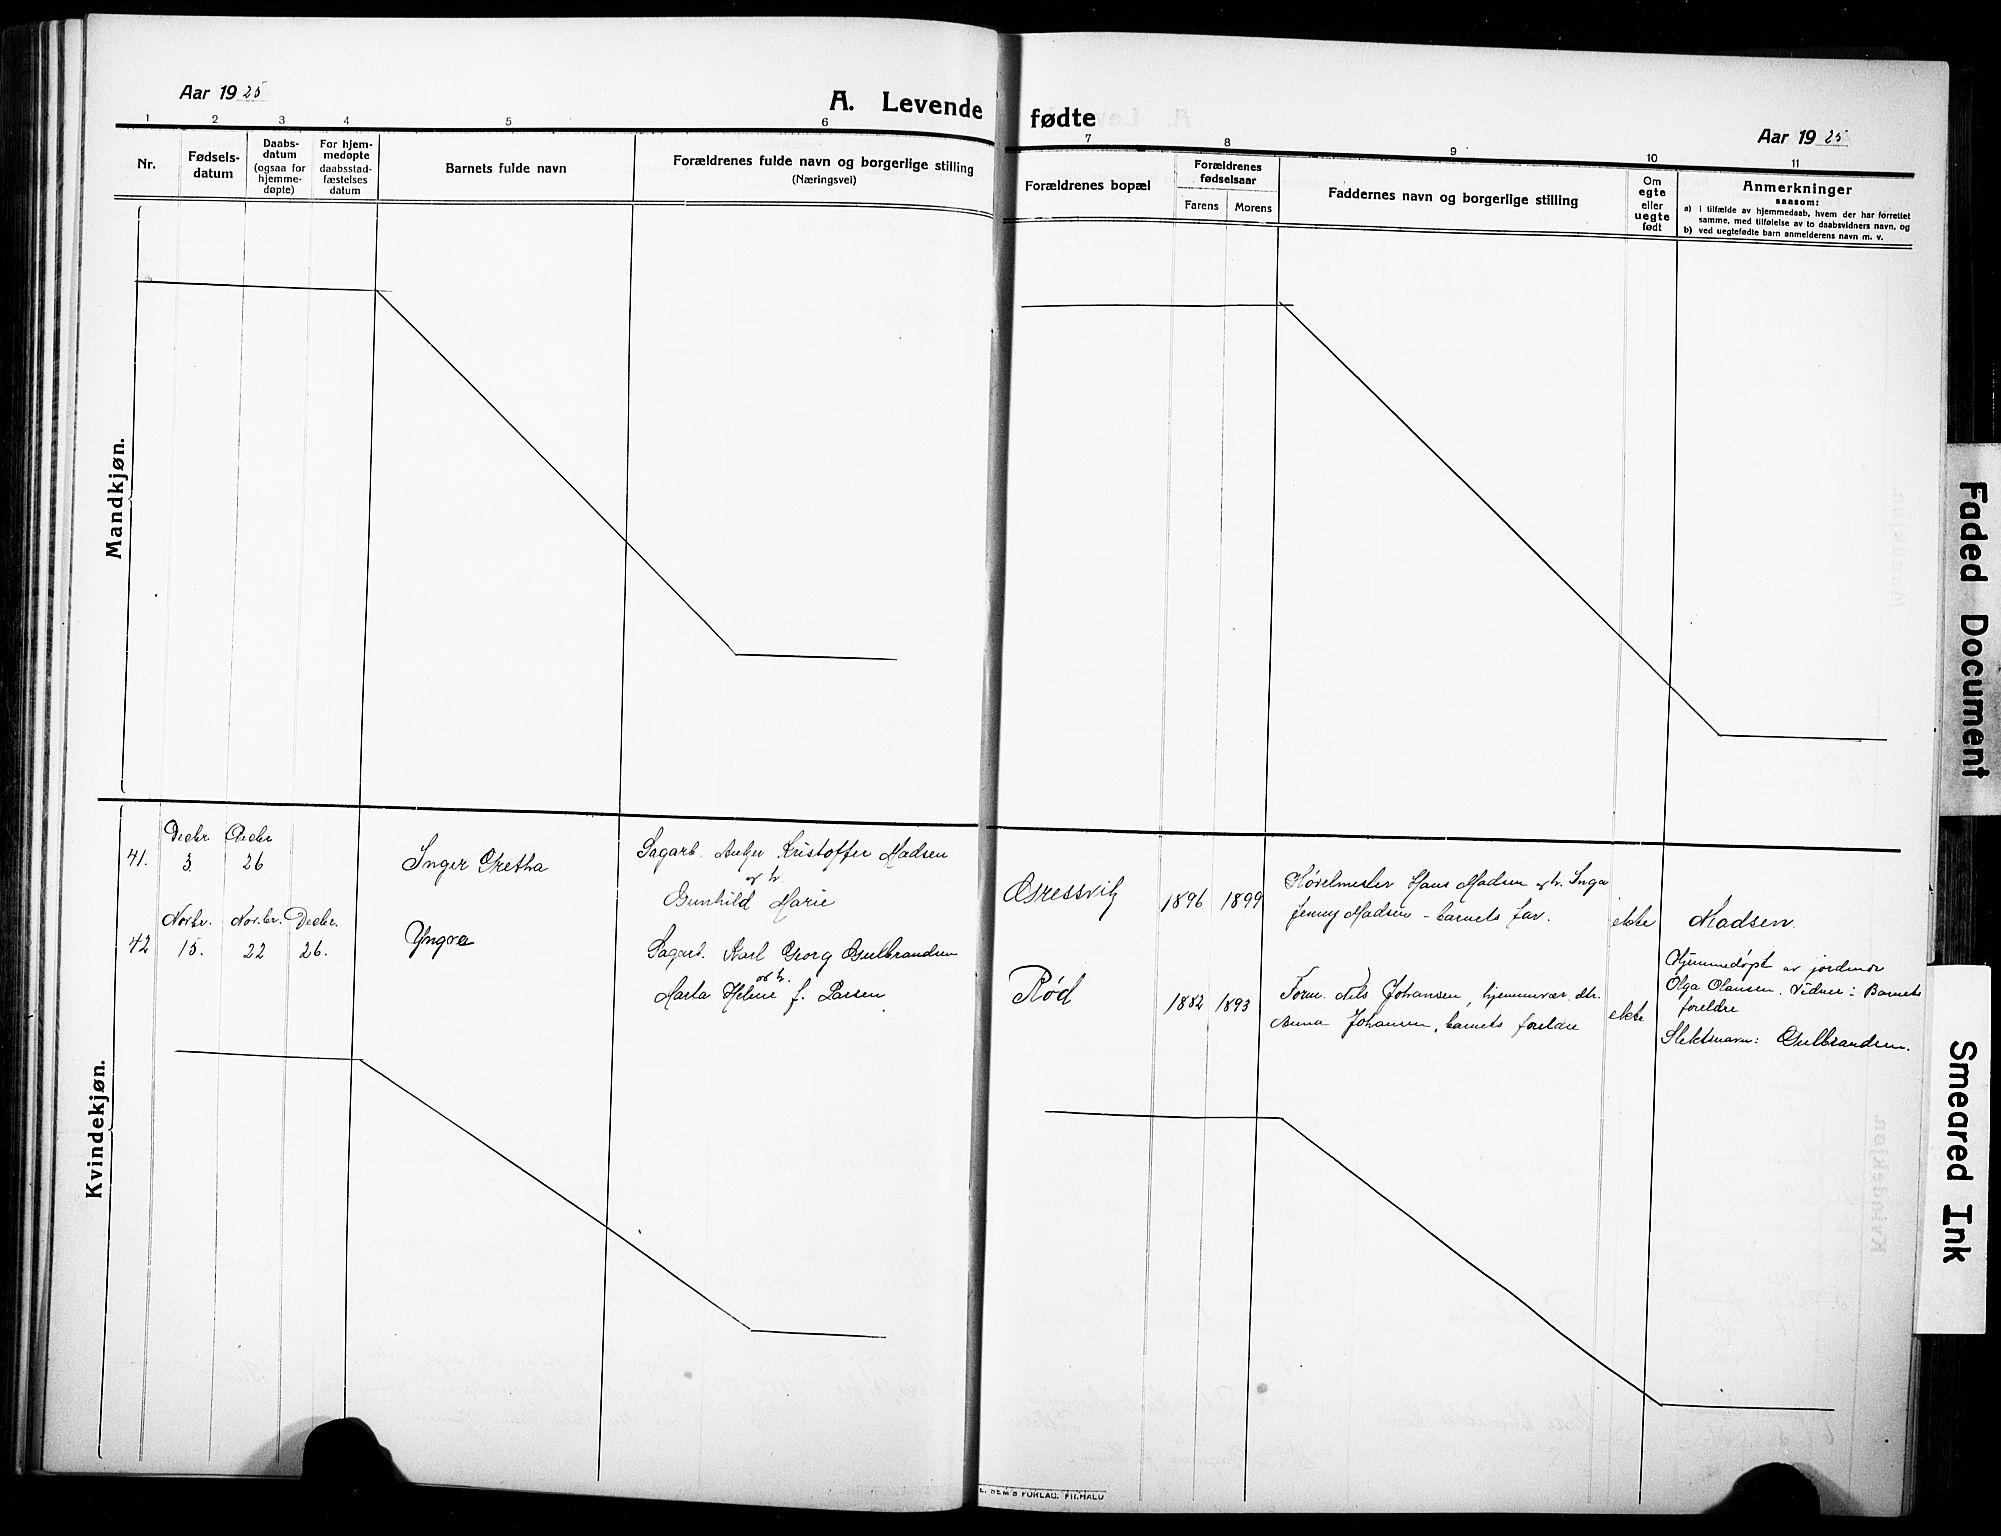 Aar 1925
A. Levende
1 2 3 4 5 6
Nr.
Fødsels-
datum
Daabs-
datum
(ogsaa for
hjemme-
døpte)
For hjem-
medøpte
daabsstad-
fæstelses
datum
Barnets fulde navn
Forældrenes fulde navn og borgerlige stilling
(Næringsvei)
Mandkjøn.
Kvindekjøn.
Decbr. Decbr
41. 3. 26
Inger Gretha
Sagarb. Anker Kristoffer Madsen
og h.
Gunhild Marie
Novbr. Novbr. Decbr.
42 15. 22 26.
Yngva
Sagarb. Karl Georg Gulbrandsen
og h.
Marta Helene f. Larsen
fødte
Aar 1925
7 8 9 10 11
Forældrenes bopæl
Forældrenes
fødselsaar
Farens Morens
Faddernes navn og borgerlige stilling
Om
egte
eller
uegte
født
Anmerkninger
saasom:
a) i tilfælde av hjemmedaab, hvem der har forrettet
samme, med tilføielse av to daabsvidners navn, og
b) ved uegtefødte barn anmelderens navn m. v.
Gressvik 1896 1899
Høvelmester Hans Madsen og h. Inga
Jenny Madsen - barnets far.
ekte
Madsen.
Rød 1882 1893
Form. Nils Johansen, hjemmevær. dtr.
Anna Johansen, barnets foreldre
ekte
Hjemmedøpt av jordmor
Olga Olausen. Vidner: Barnets
foreldre
Slektsnavn: Gulbrandsen.
E. SEM'S FORLAG. FR.HALD
Faded Document
Smeared Ink